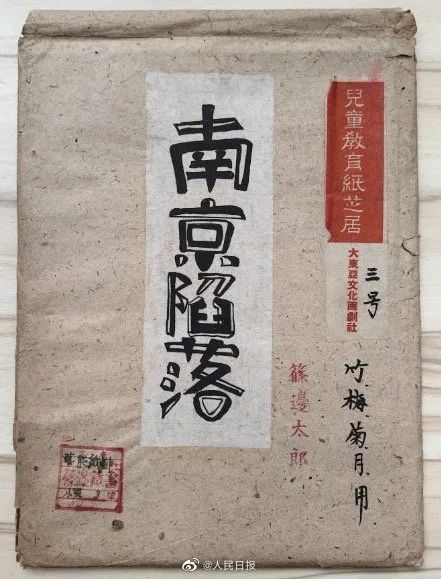 南京陷落
兒童教育紙芝居
大東亞文化画劇社
三号
竹.梅.菊.月.用
篠邊太郎
@人民日报